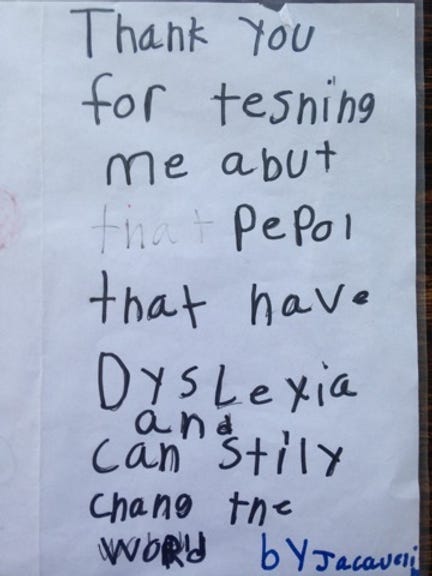 Thank you
for tesning
me abut
that Pepol
that have
Dyslexia
and
can stily
chang the
word by